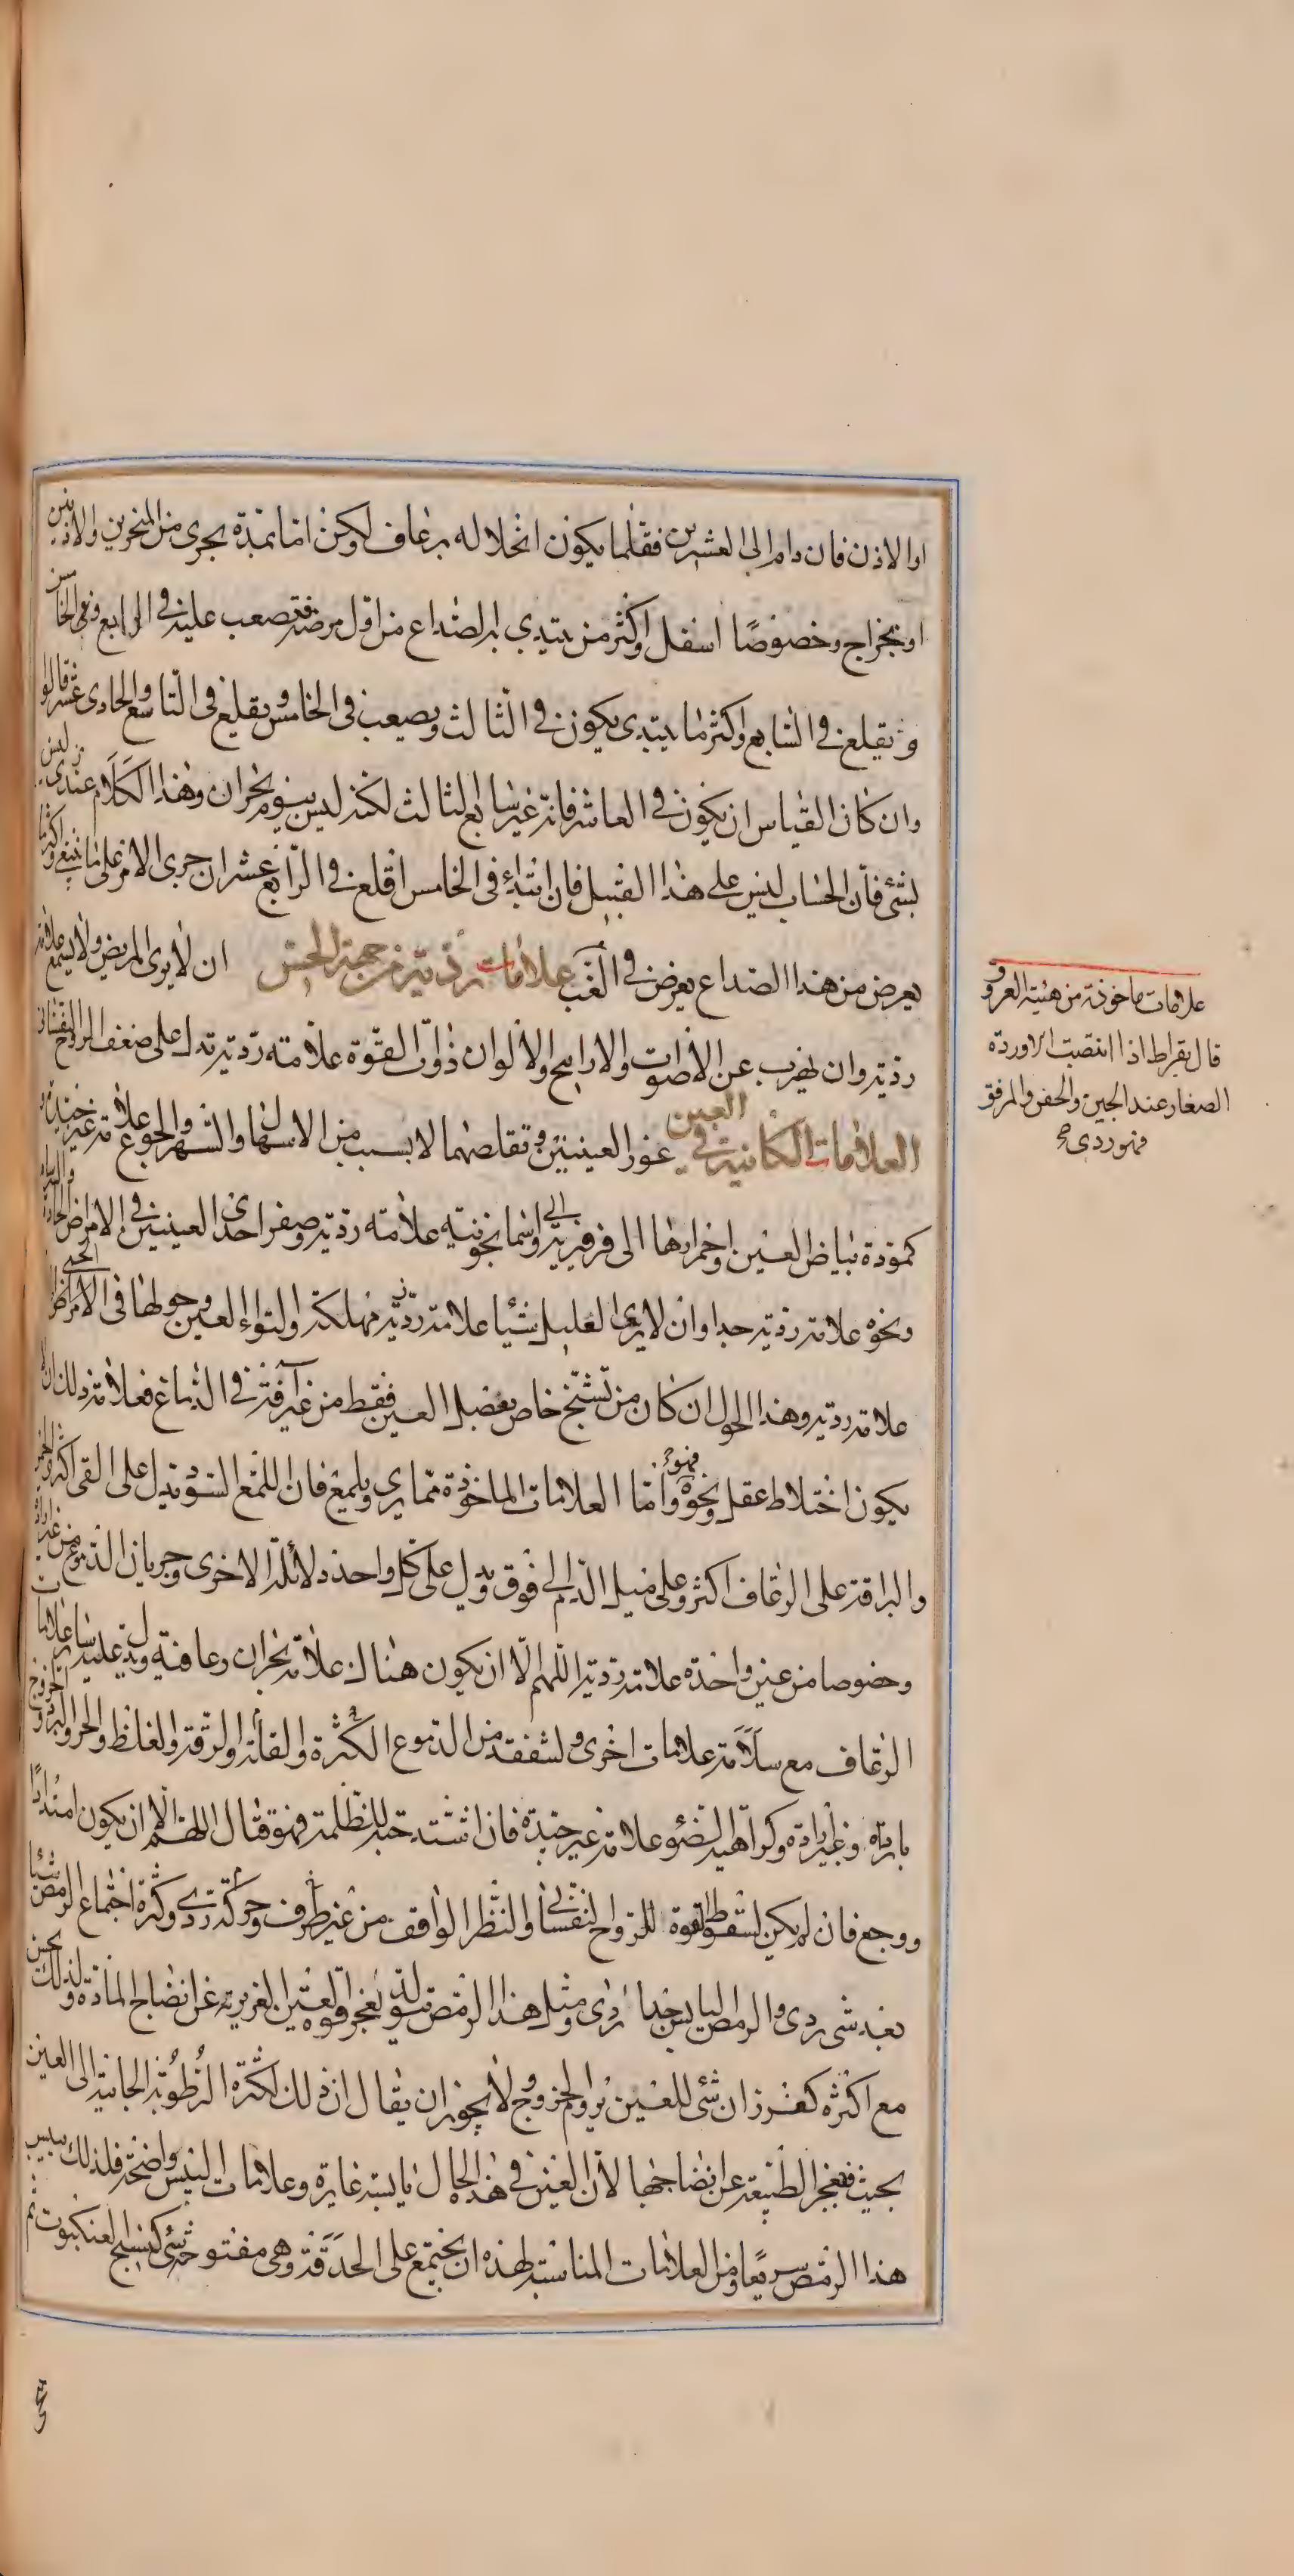 او الاذن فان دام الى العشرين فقلما يكون انحلاله برعاف لكن اما بمدة يجرى من المنخرين والاذنين
او بخراج وخصوصًا اسفل واكثر من يبتدى به الصداع من اول مرضه فتصعب عليه فى الرابع وفى الخامس
و يقلع فى السابع واكثر ما يبتدى يكون فى الثالث ويصعب فى الخامس ويقلع فى التاسع والحادى عشر قالوا
وان كان القياس ان يكون فى العاشر فانه غير سابع الثالث لكنه ليس بيوم بحران وهذا الكلام عندى ليس
بشئ فان الحساب ليس على هذا القبيل فان ابتداء فى الخامس اقلع فى الرابع عشر ان جرى الامر على ما ينبغى واكثر ما
يعرض من هذا الصداع يعرض فى الغب علامات رديه من جهة الحس ان لا يرى المريض ولا يسمع علامة
رديه وان يهرب عن الاصوات والارايح والالوان ذوات القوة علامه رديه تدل على ضعف الروح النفسانى
العلامات الكائنة فى العين غور العينين وتقلصهما لا بسبب من الاسهال والسهر والجوع علامة غير جيدة و
كمودة بياض العين واحمرارها الى فرفيرية والى اسمانجونيه علامه رديه وصغر احدى العينين فى الامراض الحادة
ونحوه علامه رديه جدا وان لا يرى العليل شيئا علامه رديه مهلكه والتواء العين وحولها فى الامراض
علامه رديه وهذا الحول ان كان من تشنج خاص بعضل العين فقط من غير آفة فى الدماغ فعلامة ذلك ان لا
يكون اختلاط عقل ونحوه فهو واما العلامات الماخوذة مما يرى ويلمع فان اللمع السود تدل على القى اكثر والحمر
والبراقة على الرعاف اكثر وعلى ميل الدم الى فوق ويدل على كل واحد دلائله الاخرى وجريان الدموع من غير ارادة
وخصوصا من عين واحدة علامه رديه اللهم الا ان يكون هناك علامة بحران رعافيه ويدل عليه سائر علامات
الرعاف مع سلامة علامات اخرى ولتفقد من الدموع الكثرة والقلة والرقة والغلظ والحر والبرد وخروج
بارادة وغير ارادة وكراهية الضوء علامة غير جيدة فان اشتد حبه للظلمة فهو قتال اللهم الا ان يكون امتدادا
ووجع فان لم يكن لسقوط القوة للروح النفسانى والنظر الواقف من غير طرف وحركة ردى وكثرة اجتماع الرمص شيئا
بعد شى ردى والرمص اليابس جدا ردى ومثل هذا الرمص يتولد لعجز قوة العين الغريزية عن انضاج المادة ولذلك يحس
مع اكثره كغرزان شئ للعين يروم الخروج ولا يجوز ان يقال ان ذلك لكثرة الرطوبة الجائية الى العين
بحيث تعجز الطبيعة عن انضاجها لان العين فى هذه الحال يابسة غايرة وعلامات اليبس واضحة فلذلك ييبس
هذا الرمص سريعًا ومن العلامات المناسبة لهذه ان يجتمع على الحدقة وهى مفتوحة شئ كنسج العنكبوت ثم
علامات ماخوذة من هيئة العروق
قال بقراط اذا انتصبت الاوردة
الصغار عند الجبين والجفن والمرفق
فهو ردى